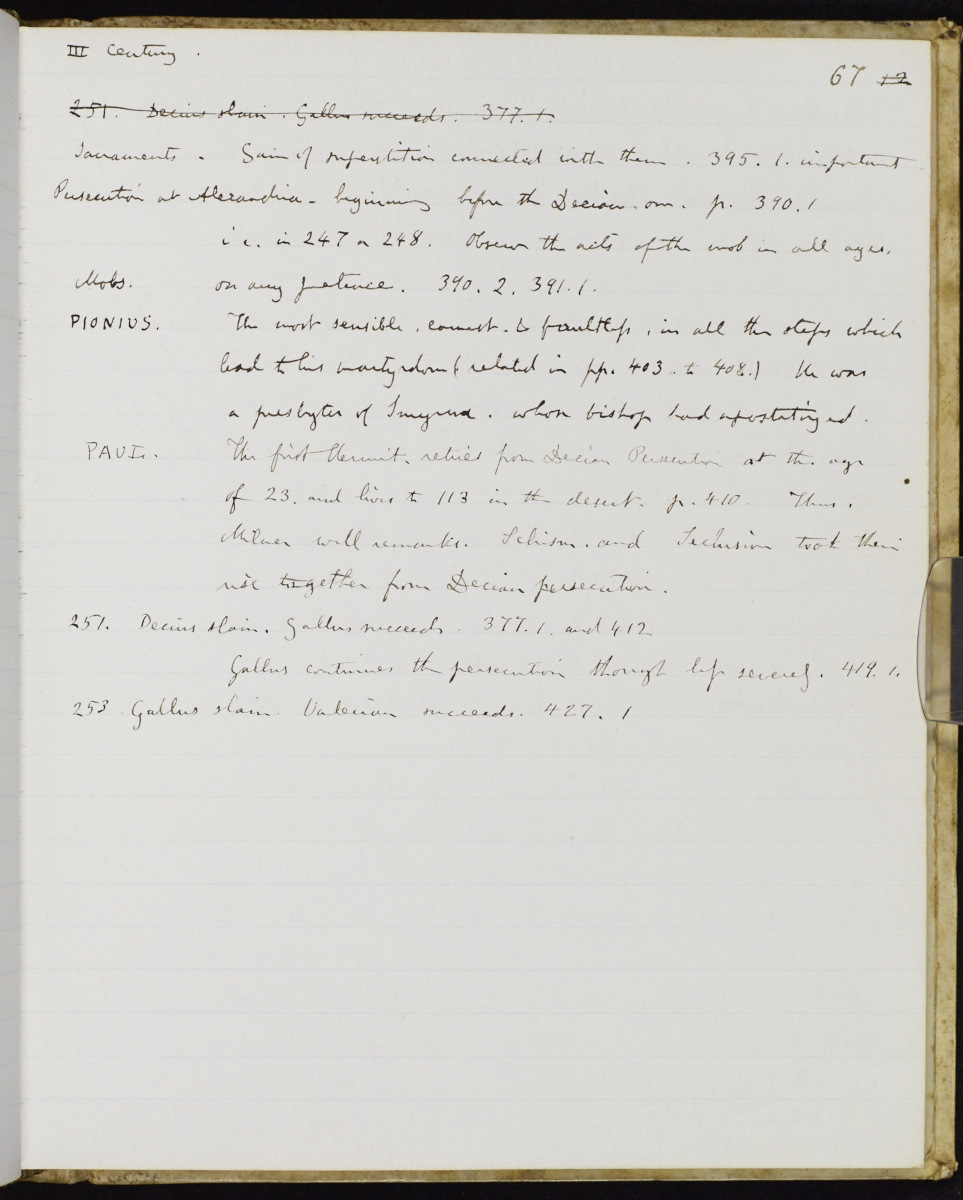 III Century .
67 12
251. Decius slain. Gallus succeeds. 377. 1.
Sacraments . Gain of superstition connected with them . 395. 1. important
Persecution at Alexandria - beginning before the Decian . one . p. 390. 1
i e. in 247 or 248. Observe the acts of the mob in all ages.
Mobs. on any pretence. 390. 2. 391. 1.
PIONIUS. The most sensible, earnest, & faultless, in all the steps which
lead to his martyrdom (related in pp. 403. to 408.) He was
a presbyter of Smyrna. whose bishop had apostatized.
PAUL. The first Hermit, retires from Decian Persecution at the age
of 23. and lives to 113 in the desert. p. 410. Thus,
Milner well remarks. Schism. and Seclusion took their
rise together from Decian persecution.
251. Decius slain. Gallus succeeds. 377. 1. and 412
Gallus continues the persecution though less severely. 419. 1.
253 Gallus slain. Valerian succeeds. 427. 1